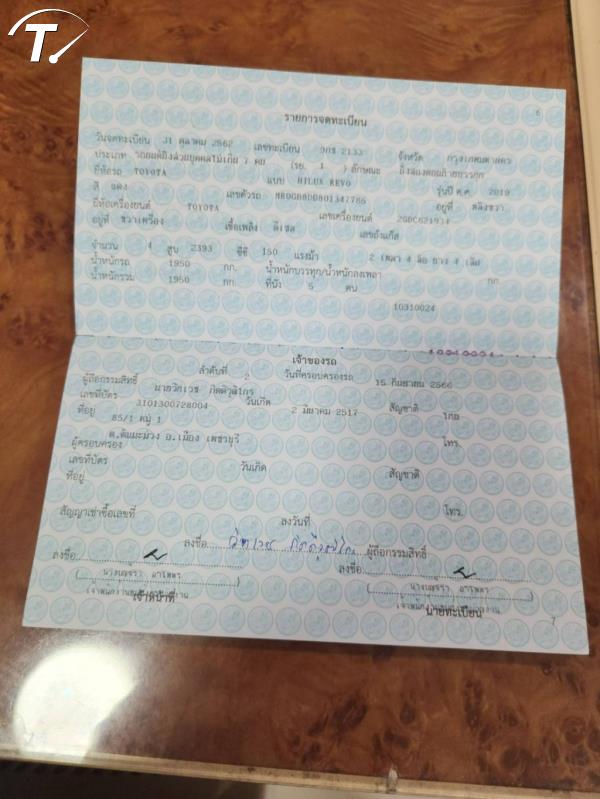 T.
6
รายการจดทะเบียน
วันจดทะเบียน 31 ตุลาคม 2562 เลขทะเบียน 2133 จังหวัด กรุงเทพมหานคร
ประเภท รถยนต์นั่งส่วนบุคคลไม่เกิน 7 คน (รย. 1 ) ลักษณะ
ยี่ห้อรถ TOYOTA แบบ HILUX REVO รุ่นปี ค.ศ. 2019
สี แดง เลขตัวรถ อยู่ที่
ยี่ห้อเครื่องยนต์ TOYOTA เลขเครื่องยนต์
อยู่ที่ ขวาเครื่อง เชื้อเพลิง ดีเซล เลขถังแก๊ส
จำนวน 4 สูบ 2393 ซีซี 150 แรงม้า 2 เพลา 4 ล้อ ยาง 4 เส้น
น้ำหนักรถ 1950 กก. น้ำหนักบรรทุก/น้ำหนักลงเพลา กก.
น้ำหนักรวม 1950 กก. ที่นั่ง 5 คน
10310024
เจ้าของรถ
ลำดับที่ 2 วันที่ครอบครองรถ 15 กันยายน 2566
ผู้ถือกรรมสิทธิ์
เลขที่บัตร 3101300728004 วันเกิด 2 มีนาคม 2517 สัญชาติ ไทย
ที่อยู่ 85/1 หมู่ 1
อ.เมือง เพชรบุรี โทร.
ผู้ครอบครอง
เลขที่บัตร วันเกิด สัญชาติ
ที่อยู่
โทร.
สัญญาเช่าซื้อเลขที่ ลงวันที่
ลงชื่อ ผู้ถือกรรมสิทธิ์
ลงชื่อ ลงชื่อ
เจ้าหน้าที่ นายทะเบียน
7